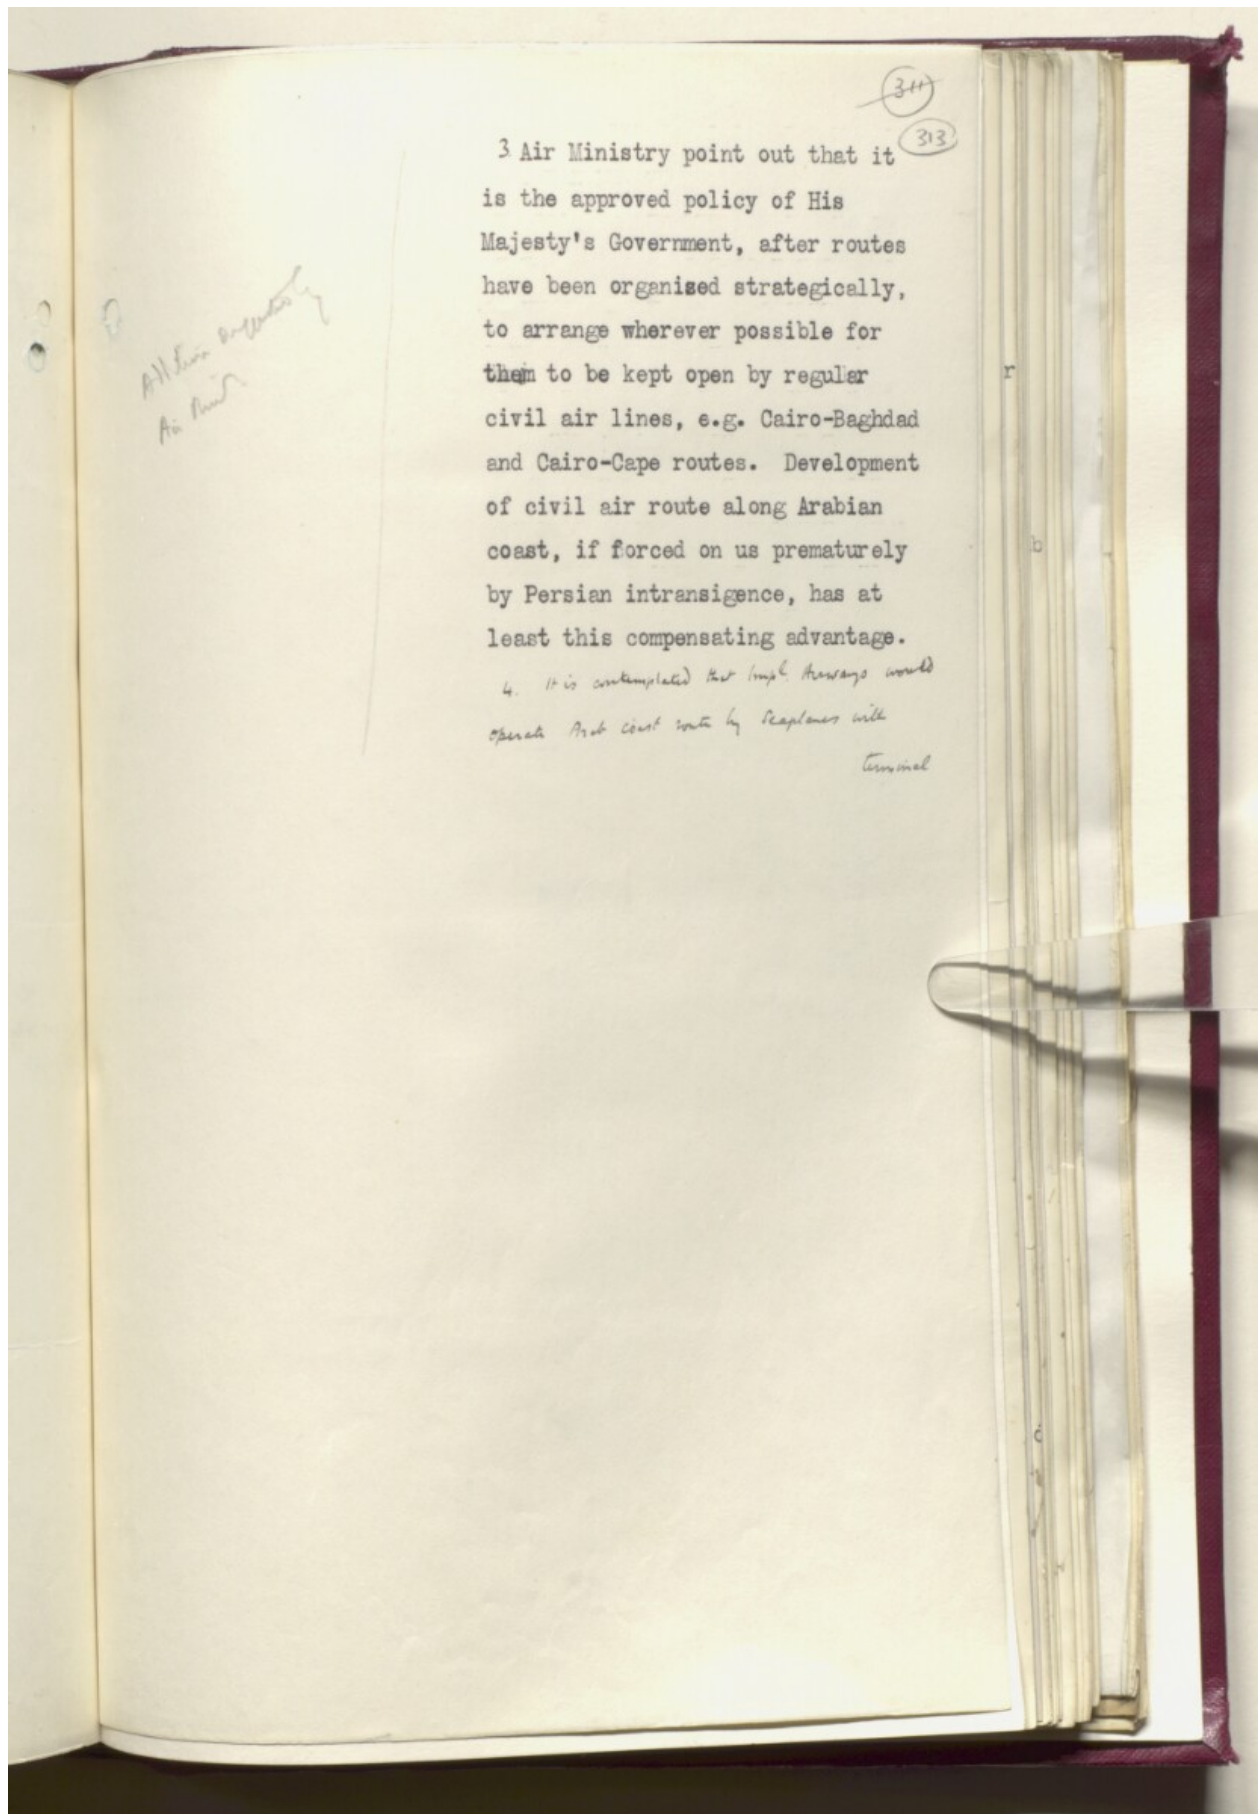 311
313
3 Air Ministry point out that it
is the approved policy of His
Majesty's Government, after routes
have been organised strategically,
to arrange wherever possible for
them to be kept open by regular
civil air lines, e.g. Cairo-Baghdad
and Cairo-Cape routes. Development
of civil air route along Arabian
coast, if forced on us prematurely
by Persian intransigence, has at
least this compensating advantage.
4. It is contemplated that Impl. Airways would
operate Arab coast route by Seaplanes with
terminal
Addition suggested by
Air Min
r
b